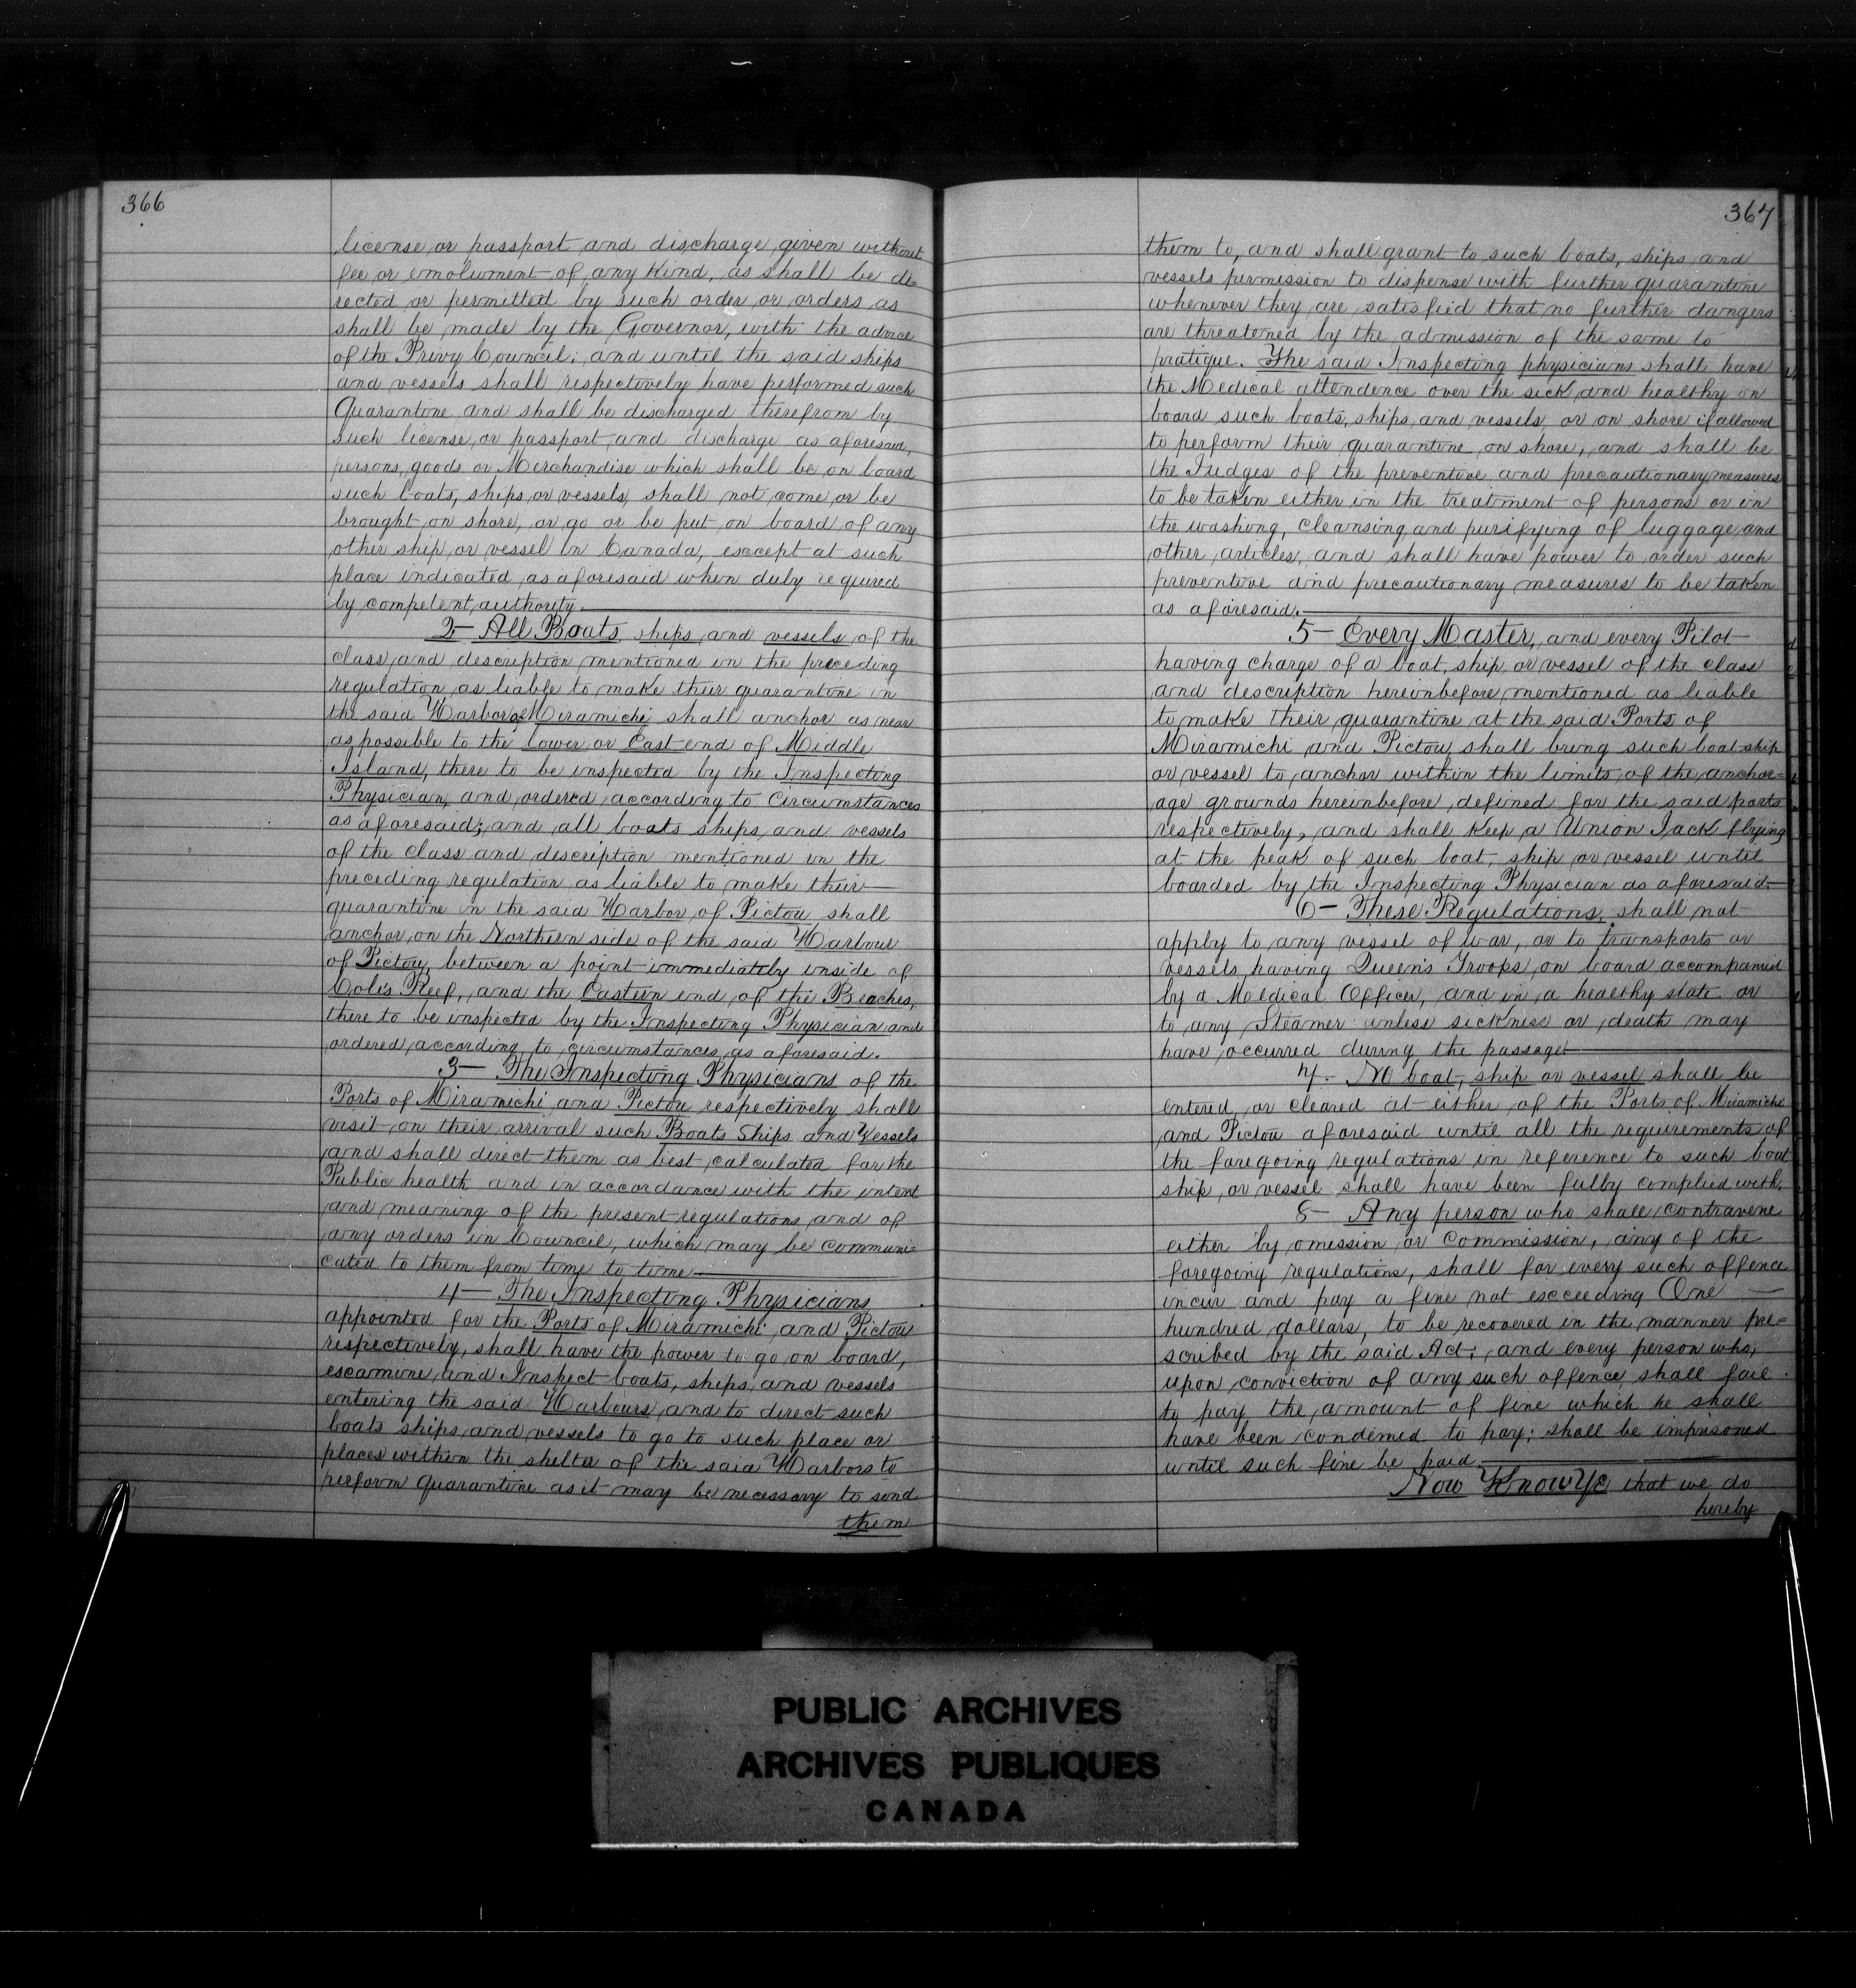 366
license or passport and discharge given without
fee or emolument of any kind, as shall be di=
rected or permitted by such order or orders as
shall be made by the Governor, with the advice
of the Privy Council; and until the said ships
and vessels shall respectively have performed such
Quarantine and shall be discharged therefrom by
such license or passport and discharge as aforesaid,
persons, goods or Merchandise which shall be on board
such boats, ships or vessels, shall not come or be
brought on shore, or go or be put on board of any
other ship or vessel in Canada, except at such
place indicated as aforesaid when duly required
by competent authority.
2- All Boats ships and vessels of the
class and description mentioned in the preceding
regulation as liable to make their quarantine in
the said Harbor of Miramichi shall anchor as near
as possible to the lower or East end of Middle
Island, there to be inspected by the Inspecting
Physician, and ordered according to Circumstances
as aforesaid; and all boats ships and vessels
of the Class and description mentioned in the
preceding regulation as liable to make their
quarantine in the said Harbor of Pictou shall
anchor on the Northern side of the said Harbour
of Pictou, between a point immediately inside of
Cole's Reef, and the Eastern end of the Beaches,
there to be inspected by the Inspecting Physician and
ordered according to circumstances as aforesaid.
3- The Inspecting Physicians of the
Ports of Miramichi and Pictou respectively shall
visit on their arrival such Boats Ships and Vessels
and shall direct them as best calculated for the
Public health and in accordance with the intent
and meaning of the present regulations and of
any orders in Council, which may be communi=
cated to them from time to time
4- The Inspecting Physicians
appointed for the Ports of Miramichi and Pictou
respectively, shall have the power to go on board,
examine and Inspect boats, ships, and vessels
entering the said Harbours and to direct such
boats ships and vessels to go to such place or
places within the shelter of the said Harbors to
perform quarantine as it may be necessary to send
them
367
them to, and shall grant to such boats, ships and
vessels permission to dispense with further quarantine
whenever they are satisfied that no further dangers
are threatened by the admission of the same to
pratique. The said Inspecting physicians shall have
the Medical attendence over the sick and healthy on
board such boats, ships, and vessels, or on shore if allowed
to perform their quarantine on shore, and shall be
the Judges of the preventive and precautionary measures
to be taken either in the treatment of persons or in
the washing, cleansing and purifying of luggage and
other articles, and shall have power to order such
preventive and precautionary measures to be taken
as aforesaid.
5- Every Master, and every Pilot
having charge of a boat, ship or vessel of the class
and description hereinbefore mentioned as liable
to make their quarantine at the said Ports of
Miramichi and Pictou shall bring such boat ship
or vessel to anchor within the limits of the anchor=
age grounds hereinbefore defined for the said ports
respectively, and shall keep a Union Jack flying
at the peak of such boat, ship or vessel until
boarded by the Inspecting Physician as aforesaid.
6- These Regulations, shall not
apply to any vessel of war, or to transports or
vessels having Queen's Troops on board accompanied
by a Medical Officer, and in a healthy state or
to any Steamer unless sickness or death may
have occurred during the passage.
7- No boat, ship or vessel shall be
entered or cleared at either of the Ports of Miramichi
and Pictou aforesaid until all the requirements of
the foregoing regulations in reference to such boat
ship or vessel shall have been fully complied with.
8- Any person who shall contravene
either by omission or commission, any of the
foregoing regulations, shall for every such offence
incur and pay a fine not exceeding One
hundred dollars, to be recovered in the manner pre=
scribed by the said Act; and every person who,
upon conviction of any such offence shall fail
to pay the amount of fine which he shall
have been condemed to pay; shall be imprisoned
until such fine be paid.
Now Know Ye that we do
hereby
PUBLIC ARCHIVES
ARCHIVES PUBLIQUES
CANADA